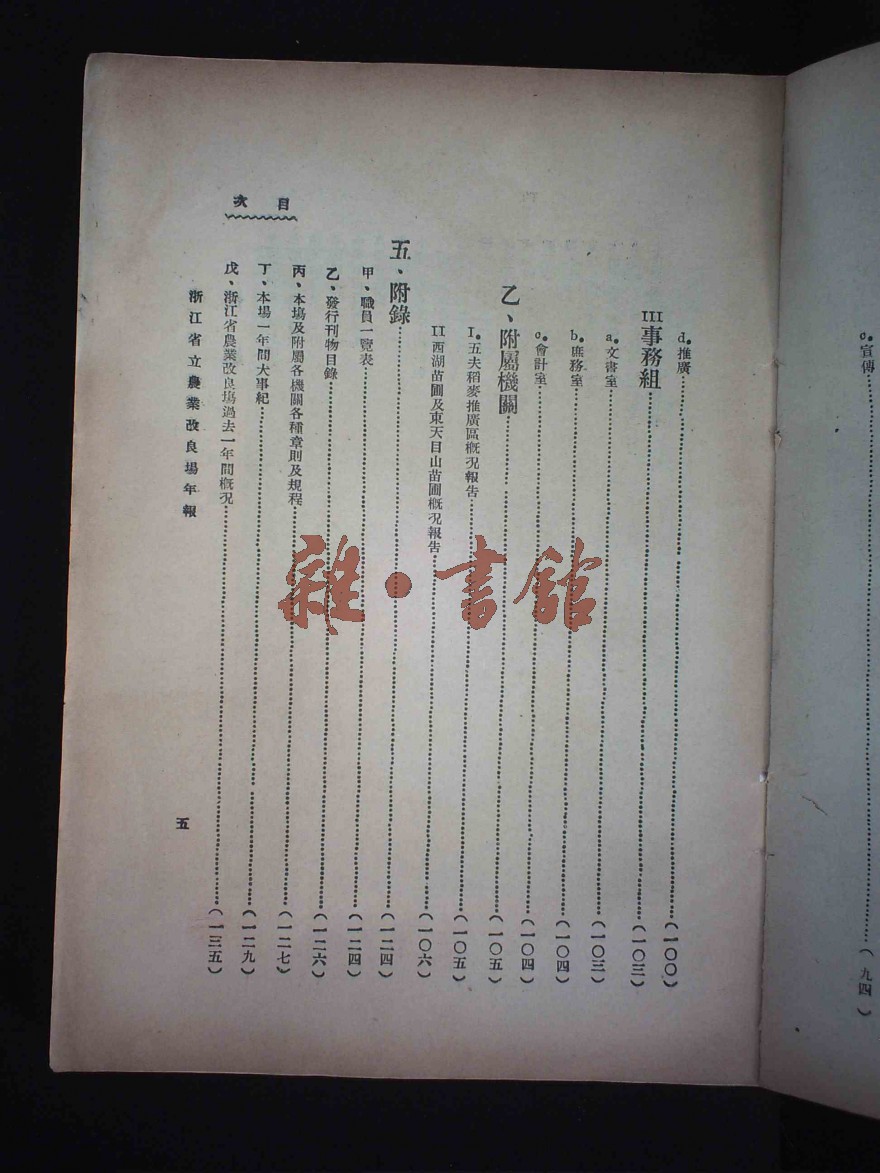 c．宣傳……（九四）
目　次
d．推廣……（一〇〇）
III 事務組……（一〇三）
a．文書室……（一〇三）
b．庶務室……（一〇四）
c．會計室……（一〇四）
乙、附屬機關……（一〇五）
I．五夫稻麥推廣區概况報告……（一〇五）
II 西湖苗圃及東天目山苗圃概况報告……（一〇六）
五、附錄……（一二四）
甲、職員一覽表……（一二四）
乙、發行刊物目錄……（一二六）
丙、本塲及附屬各機關各種章則及規程……（一二七）
丁、本塲一年間大事紀……（一二九）
戊、浙江省農業改良塲過去一年間概况……（一三五）
浙江省立農業改良場年報
五
雜·書館